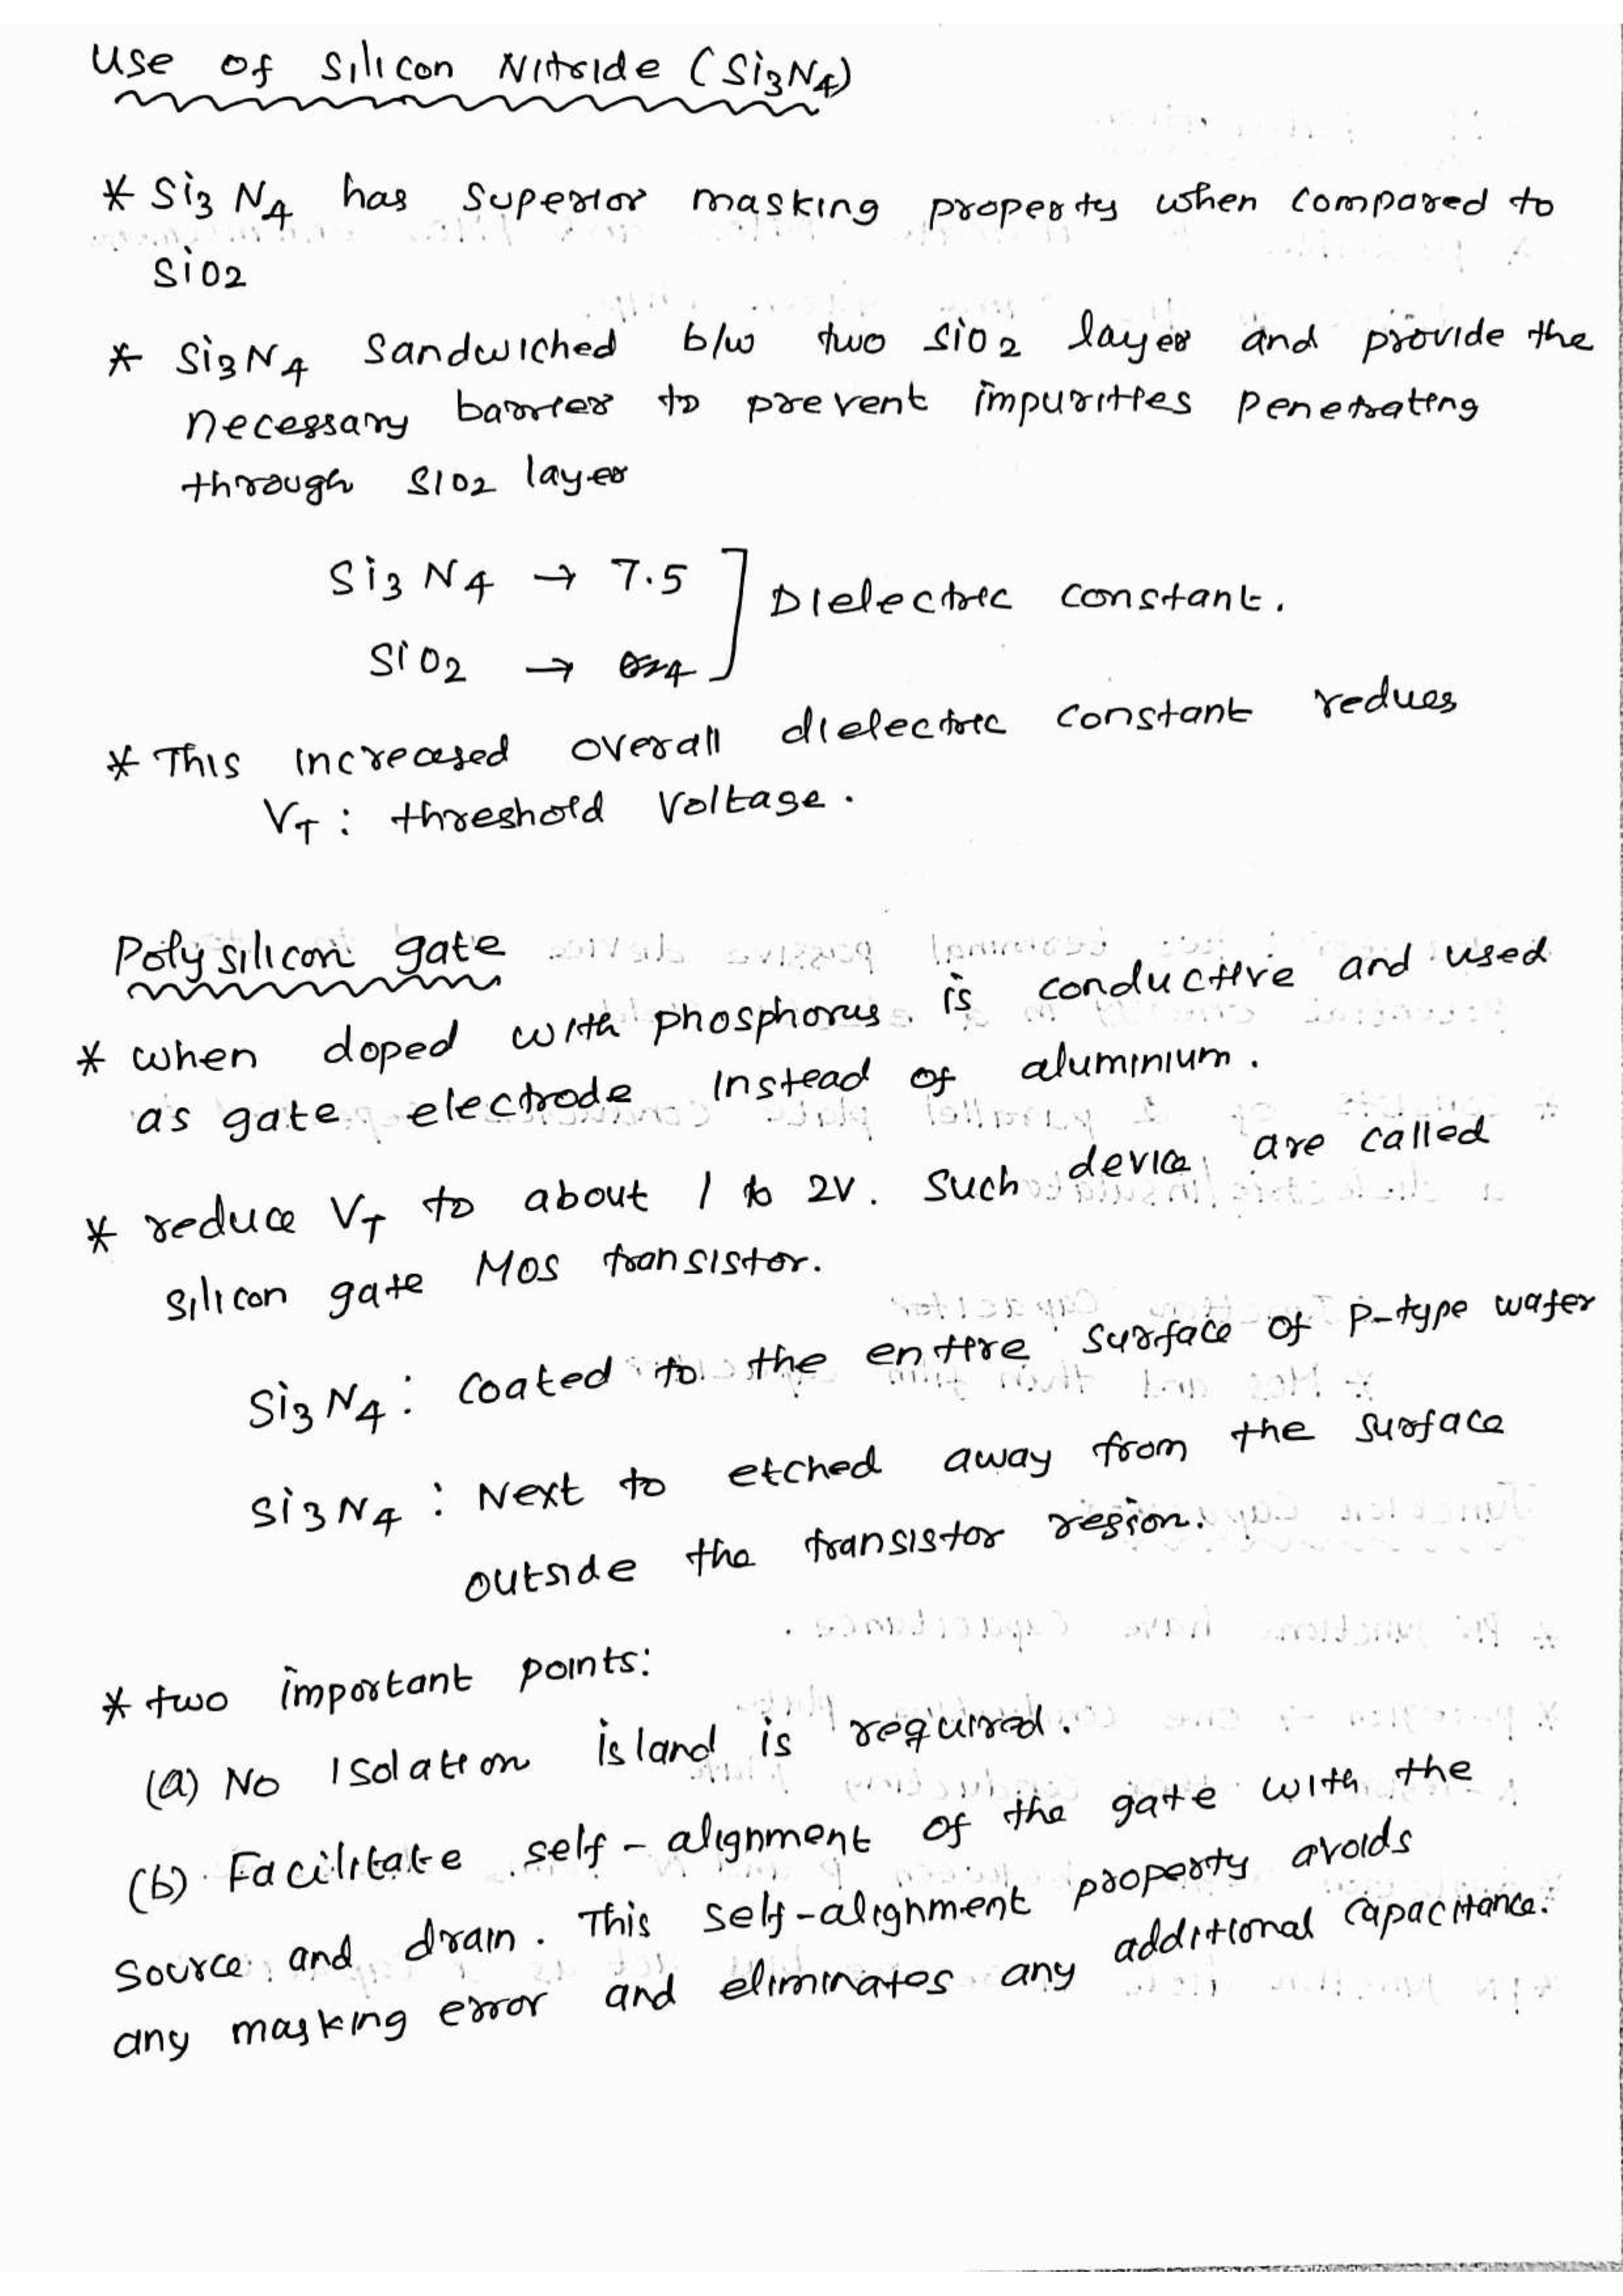 Use of Silicon Nitride (Si3N4)
* Si3 N4 has superior masking property when compared to
SiO2
* Si3N4 Sandwiched b/w two SiO2 layer and provide the
necessary barrier to prevent impurities penetrating
through SiO2 layer
Si3 N4 → 7.5
Dielectric constant.
SiO2 → 4
* This increased overall dielectric constant redues
VT : threshold Voltage.
Poly silicon gate
* when doped with phosphorus is conductive and used
as gate electrode Instead of aluminium.
* reduce VT to about 1 to 2V. Such device are called
silicon gate MOS transistor.
Si3 N4 : coated to the entire surface of P-type wafer
Si3 N4 : Next to etched away from the surface
outside the transistor region.
* two important points:
(a) No Isolation island is required.
(b) Facilitate self-alignment of the gate with the
source and drain. This self-alignment property avoids
any masking error and eliminates any additional capacitance.